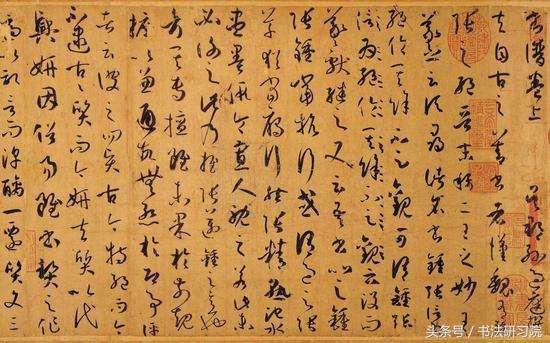 書譜卷上 吳郡孫過庭撰
夫自古之善書者漢魏有鍾
張之絕晉末稱二王之妙王
羲之云頃尋諸名書鍾張信為
絕倫其餘不足觀可謂鍾張
信為絕倫其餘不足觀云沒而
羲獻繼之又云吾書比之鍾
張鍾當抗行或謂過之張
草猶當雁行然張精熟池水
盡墨假令寡人耽之若此未
必謝之此乃推張邁鍾之意也
考其專擅雖未果於前規
摭以兼通故無慚於即事評
者云彼之四賢古今特絕而今
不逮古古質而今妍夫質以代
興妍因俗易雖書契之作
適以記言而淳醨一遷質文三
头条号 / 书法研习院